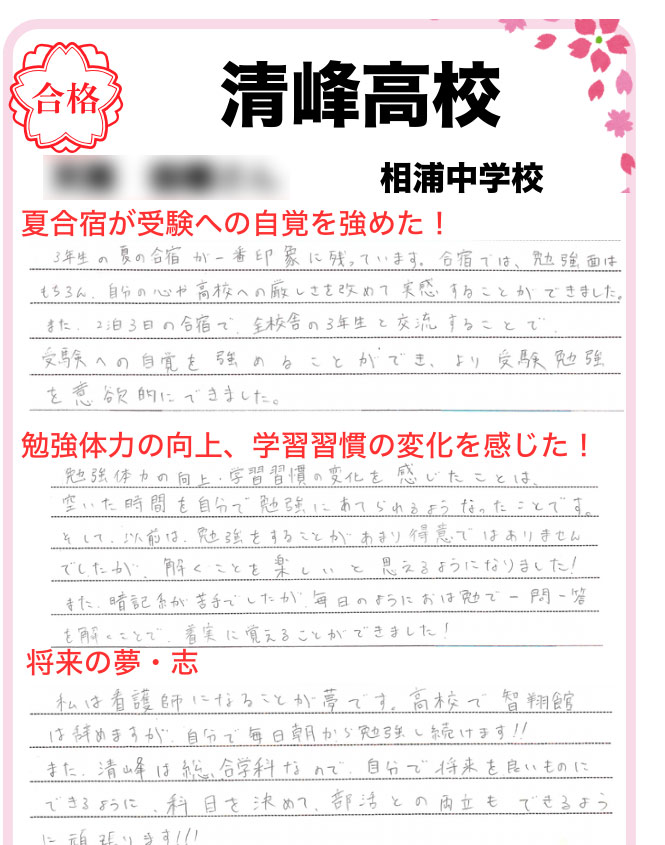 合格
清峰高校
相浦中学校
夏合宿が受験への自覚を強めた！
3年生の夏の合宿が一番印象に残っています。合宿では、勉強面は
もちろん、自分の心や高校への厳しさを改めて実感することができました。
また、2泊3日の合宿で、全校舎の3年生と交流することで、
受験への自覚を強めることができ、より受験勉強
を意欲的にできました。
勉強体力の向上、学習習慣の変化を感じた！
勉強体力の向上、学習習慣の変化を感じたことは、
空いた時間を自分で勉強にあてられるようなったことです。
そして、以前は、勉強をすることがあまり得意ではありません
でしたが、解くことを楽しいと思えるようになりました!
また、暗記系が苦手でしたが、毎日のようにおは勉で一問一答
を解くことで、着実に覚えることができました!
将来の夢・志
私は看護師になることが夢です。高校で智翔館
は辞めますが、自分で毎日朝から勉強し続けます!!
また、清峰は総合学科なので、自分で将来を良いものに
できるように、科目を決めて、部活との両立もできるよう
に頑張ります!!!